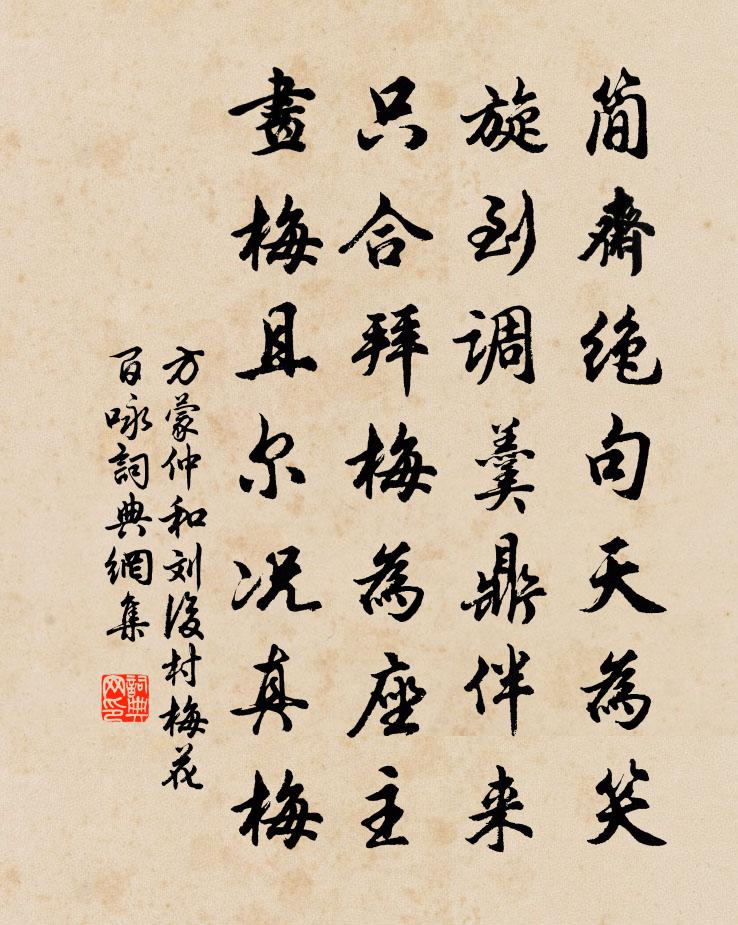 简齋绝句天為笑
旋到调羹鼎伴来
只合拜梅為座主
畫梅且尔况真梅
方蒙仲和刘後村梅花
百咏詞典網集
詞典网印